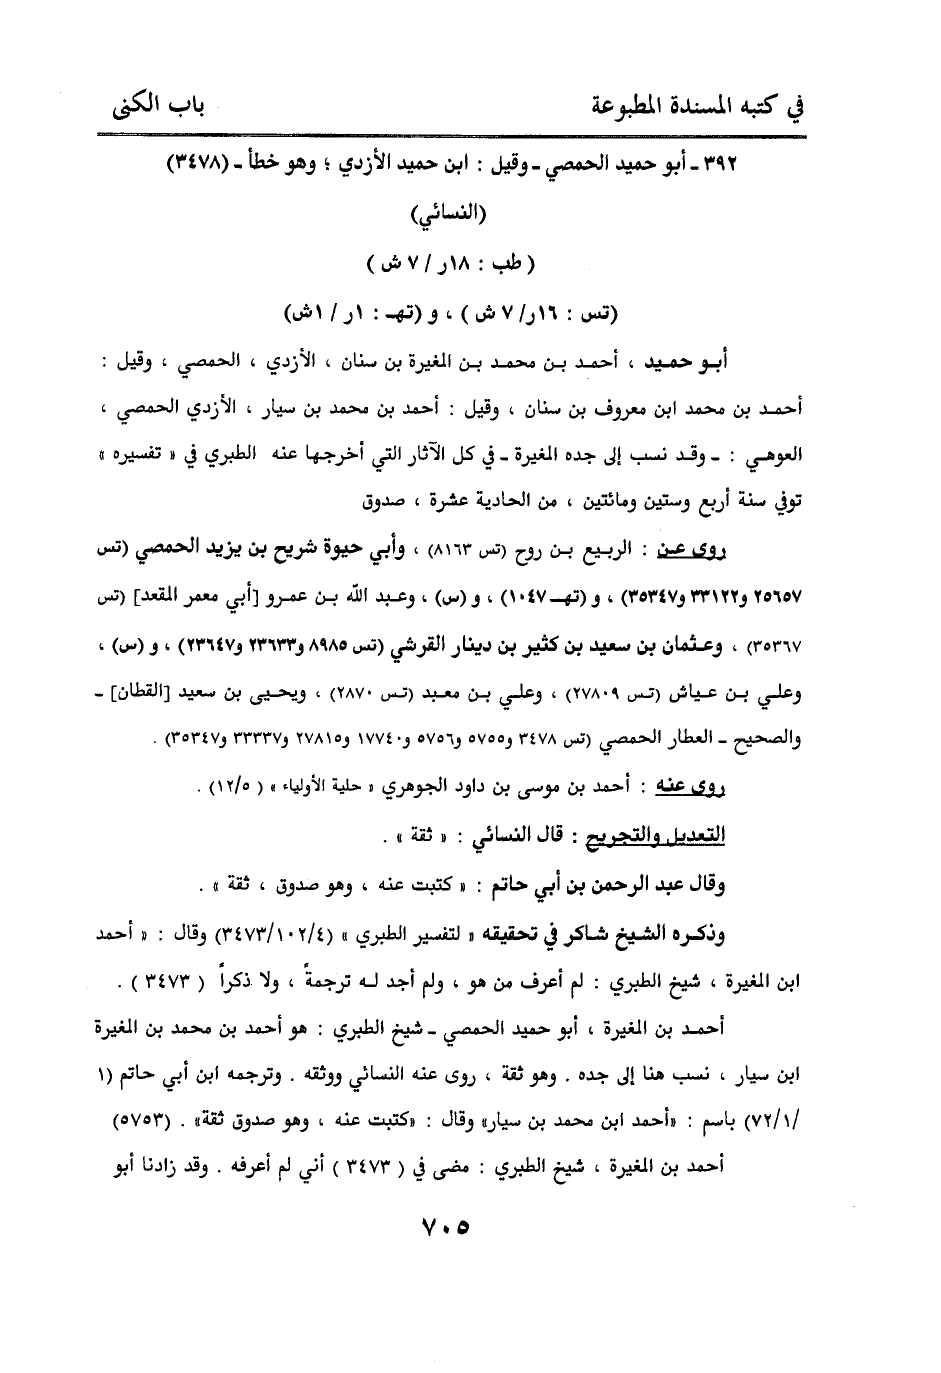 في كتبه المسندة المطبوعة
باب الكنى
٣٩٢ ـ أبو حميد الحمصي ـ وقيل : ابن حميد الأزدي ؛ وهو خطأ ـ (٣٤٧٨)
(النسائي)
( طب : ١٨ر / ٧ ش )
(تس : ١٦ر/ ٧ ش ) ، و (تهـ : ١ر / ١ش)
أبو حميد ، أحمد بن محمد بن المغيرة بن سنان ، الأزدي ، الحمصي ، وقيل :
أحمد بن محمد ابن معروف بن سنان ، وقيل : أحمد بن محمد بن سيار ، الأزدي الحمصي ،
العوهي : ـ وقد نسب إلى جده المغيرة ـ في كل الآثار التي أخرجها عنه الطبري في « تفسيره »
توفي سنة أربع وستين ومائتين ، من الحادية عشرة ، صدوق
روى عن : الربيع بن روح (تس ٨١٦٣) ، وأبي حيوة شريح بن يزيد الحمصي (تس
٢٥٦٥٧ و٣٣١٢٢ و٣٥٣٤٧) ، و (تهـ ١٠٤٧) ، و (س) ، وعبد الله بن عمرو [أبي معمر المقعد] (تس
٣٥٣٦٧) ، وعثمان بن سعيد بن كثير بن دينار القرشي (تس ٨٩٨٥ و٢٣٦٣٣ و٢٣٦٤٧) ، و (س) ،
وعلي بن عياش (تس ٢٧٨٠٩) ، وعلي بن معبد (تس ٢٨٧٠) ، ويحيى بن سعيد [القطان] ـ
والصحيح ـ العطار الحمصي (تس ٣٤٧٨ و٥٧٥٥ و٥٧٥٦ و١٧٧٤٠ و٢٧٨١٥ و٣٣٣٣٧ و٣٥٣٤٧) .
روى عنه : أحمد بن موسى بن داود الجوهري « حلية الأولياء » ( ١٢/٥) .
التعديل والتجريح : قال النسائي : « ثقة » .
وقال عبد الرحمن بن أبي حاتم : « كتبت عنه ، وهو صدوق ، ثقة » .
وذكره الشيخ شاكر في تحقيقه « لتفسير الطبري » (٣٤٧٣/١٠٢/٤) وقال : « أحمد
ابن المغيرة ، شيخ الطبري : لم أعرف من هو ، ولم أجد له ترجمةً ، ولا ذكراً ( ٣٤٧٣ ) .
أحمد بن المغيرة ، أبو حميد الحمصي ـ شيخ الطبري : هو أحمد بن محمد بن المغيرة
ابن سيار ، نسب هنا إلى جده . وهو ثقة ، روى عنه النسائي ووثقه . وترجمه ابن أبي حاتم (١
/٧٢/١) باسم : «أحمد ابن محمد بن سيار» وقال : «كتبت عنه ، وهو صدوق ثقة» . (٥٧٥٣)
أحمد بن المغيرة ، شيخ الطبري : مضى في ( ٣٤٧٣ ) أني لم أعرفه . وقد زادنا أبو
٧٠٥